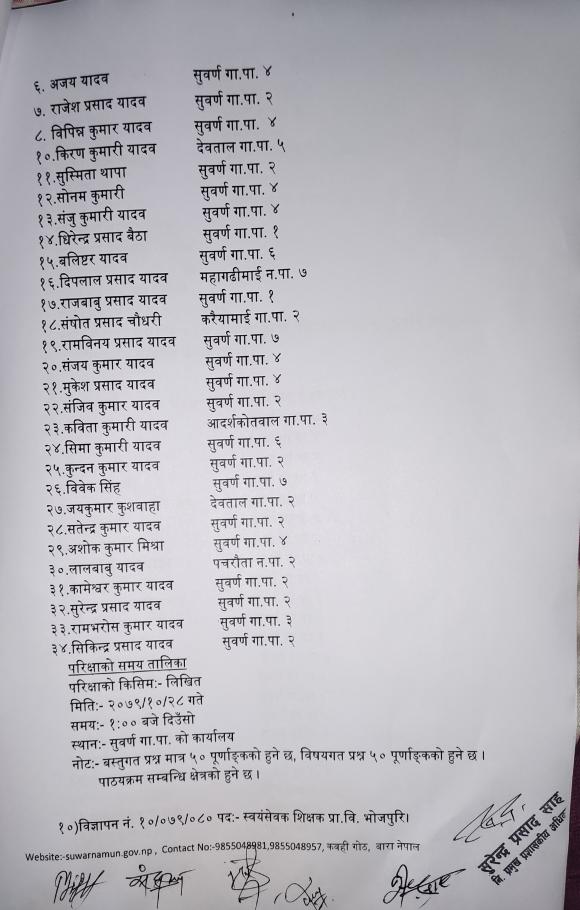 ६. अजय यादव सुवर्ण गा.पा. ४
७. राजेश प्रसाद यादव सुवर्ण गा.पा. २
८. विपिन्न कुमार यादव सुवर्ण गा.पा. ४
१०.किरण कुमारी यादव देवताल गा.पा. ५
११.सुस्मिता थापा सुवर्ण गा.पा. २
१२.सोनम कुमारी सुवर्ण गा.पा. ४
१३.संजु कुमारी यादव सुवर्ण गा.पा. ४
१४.धिरेन्द्र प्रसाद बैठा सुवर्ण गा.पा. १
१५.बलिष्टर यादव सुवर्ण गा.पा. ६
१६.दिपलाल प्रसाद यादव महागढीमाई न.पा. ७
१७.राजबाबु प्रसाद यादव सुवर्ण गा.पा. १
१८.संषोत प्रसाद चौधरी करैयामाई गा.पा. २
१९.रामविनय प्रसाद यादव सुवर्ण गा.पा. ७
२०.संजय कुमार यादव सुवर्ण गा.पा. ४
२१.मुकेश प्रसाद यादव सुवर्ण गा.पा. ४
२२.संजिव कुमार यादव सुवर्ण गा.पा. २
२३.कविता कुमारी यादव आदर्शकोतवाल गा.पा. ३
२४.सिमा कुमारी यादव सुवर्ण गा.पा. ६
२५.कुन्दन कुमार यादव सुवर्ण गा.पा. २
२६.विवेक सिंह सुवर्ण गा.पा. ७
२७.जयकुमार कुशवाहा देवताल गा.पा. २
२८.सतेन्द्र कुमार यादव सुवर्ण गा.पा. २
२९.अशोक कुमार मिश्रा सुवर्ण गा.पा. ४
३०.लालबाबु यादव पचरौता न.पा. २
३१.कामेश्वर कुमार यादव सुवर्ण गा.पा. २
३२.सुरेन्द्र प्रसाद यादव सुवर्ण गा.पा. २
३३.रामभरोस कुमार यादव सुवर्ण गा.पा. ३
३४.सिकिन्द्र प्रसाद यादव सुवर्ण गा.पा. २
परिक्षाको समय तालिका
परिक्षाको किसिम:- लिखित
मिति:- २०७९/१०/२८ गते
समय:- १:०० बजे दिउँसो
स्थान:- सुवर्ण गा.पा. को कार्यालय
नोट:- बस्तुगत प्रश्न मात्र ५० पूर्णाङ्कको हुने छ, विषयगत प्रश्न ५० पूर्णाङ्कको हुने छ ।
पाठयक्रम सम्बन्धि क्षेत्रको हुने छ ।
१०)विज्ञापन नं. १०/०७९/०८० पद:- स्वयंसेवक शिक्षक प्रा.वि. भोजपुरि।
Website:-suwarnamun.gov.np , Contact No:-9855048981,9855048957, कवही गोठ, बारा नेपाल
सुरेन्द्र प्रसाद साह
नि. प्रमुख प्रशासकीय अधिकृ